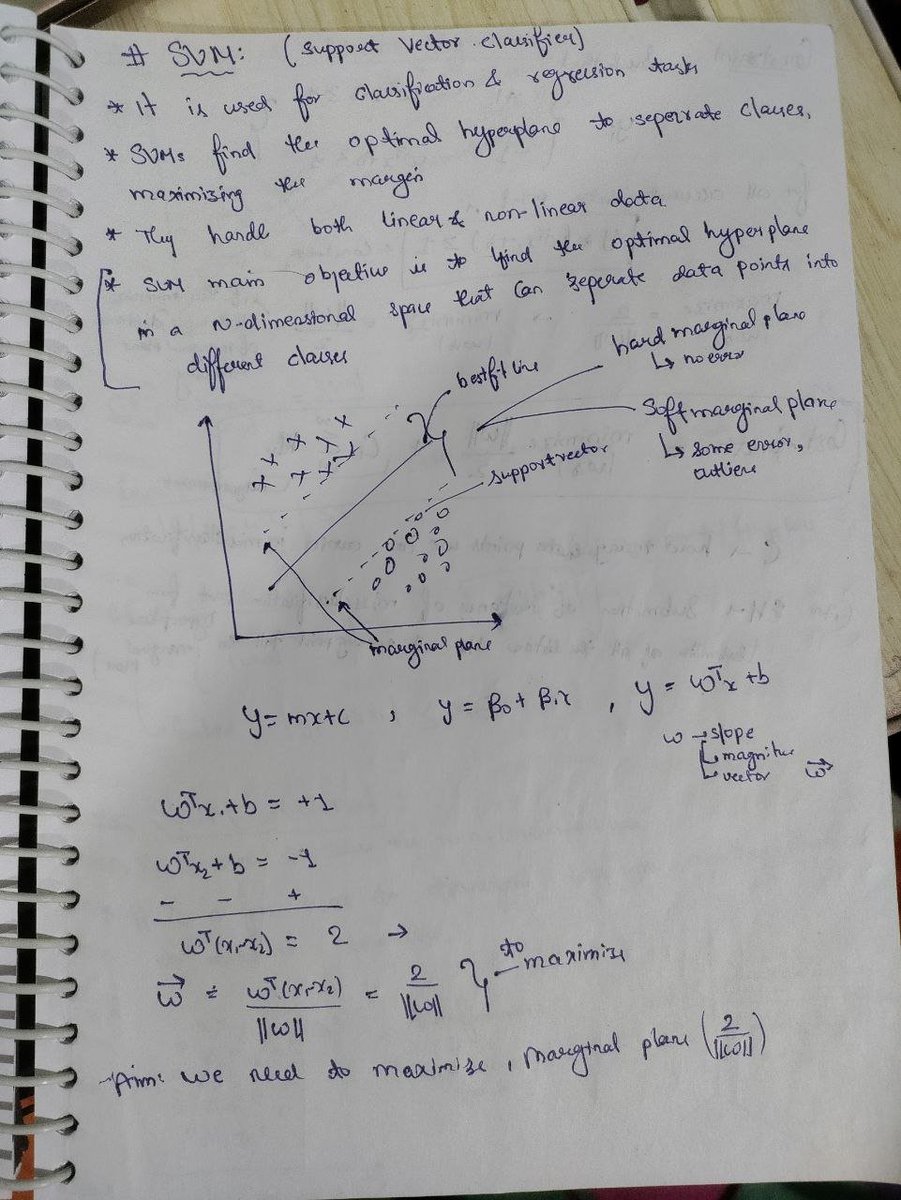 # SVM: (Support Vector classifier)
* It is used for classification & regression task
* SVMs find the optimal hyperplane to seperrate classes,
maximizing the margin
* They handle both linear & non-linear data
* SVM main objective is to find the optimal hyperplane
in a N-dimensional space that can seperate data points into
different classes
best fit line
hard marginal plane
↳ no error
Soft marginal plane
↳ some error,
outliers
support vector
marginal plane
y = mx+c , y = β0 + β1x , y = ωᵀx + b
ω → slope
↳ magnitue
↳ vector ω⃗
ωᵀx₁ + b = +1
ωᵀx₂ + b = -1
- - +
ωᵀ(x₁-x₂) = 2 →
ω⃗ = ωᵀ(x₁-x₂) / ||ω|| = 2 / ||ω|| } to maximize
Aim: we need to maximize, marginal plane (2 / ||ω||)